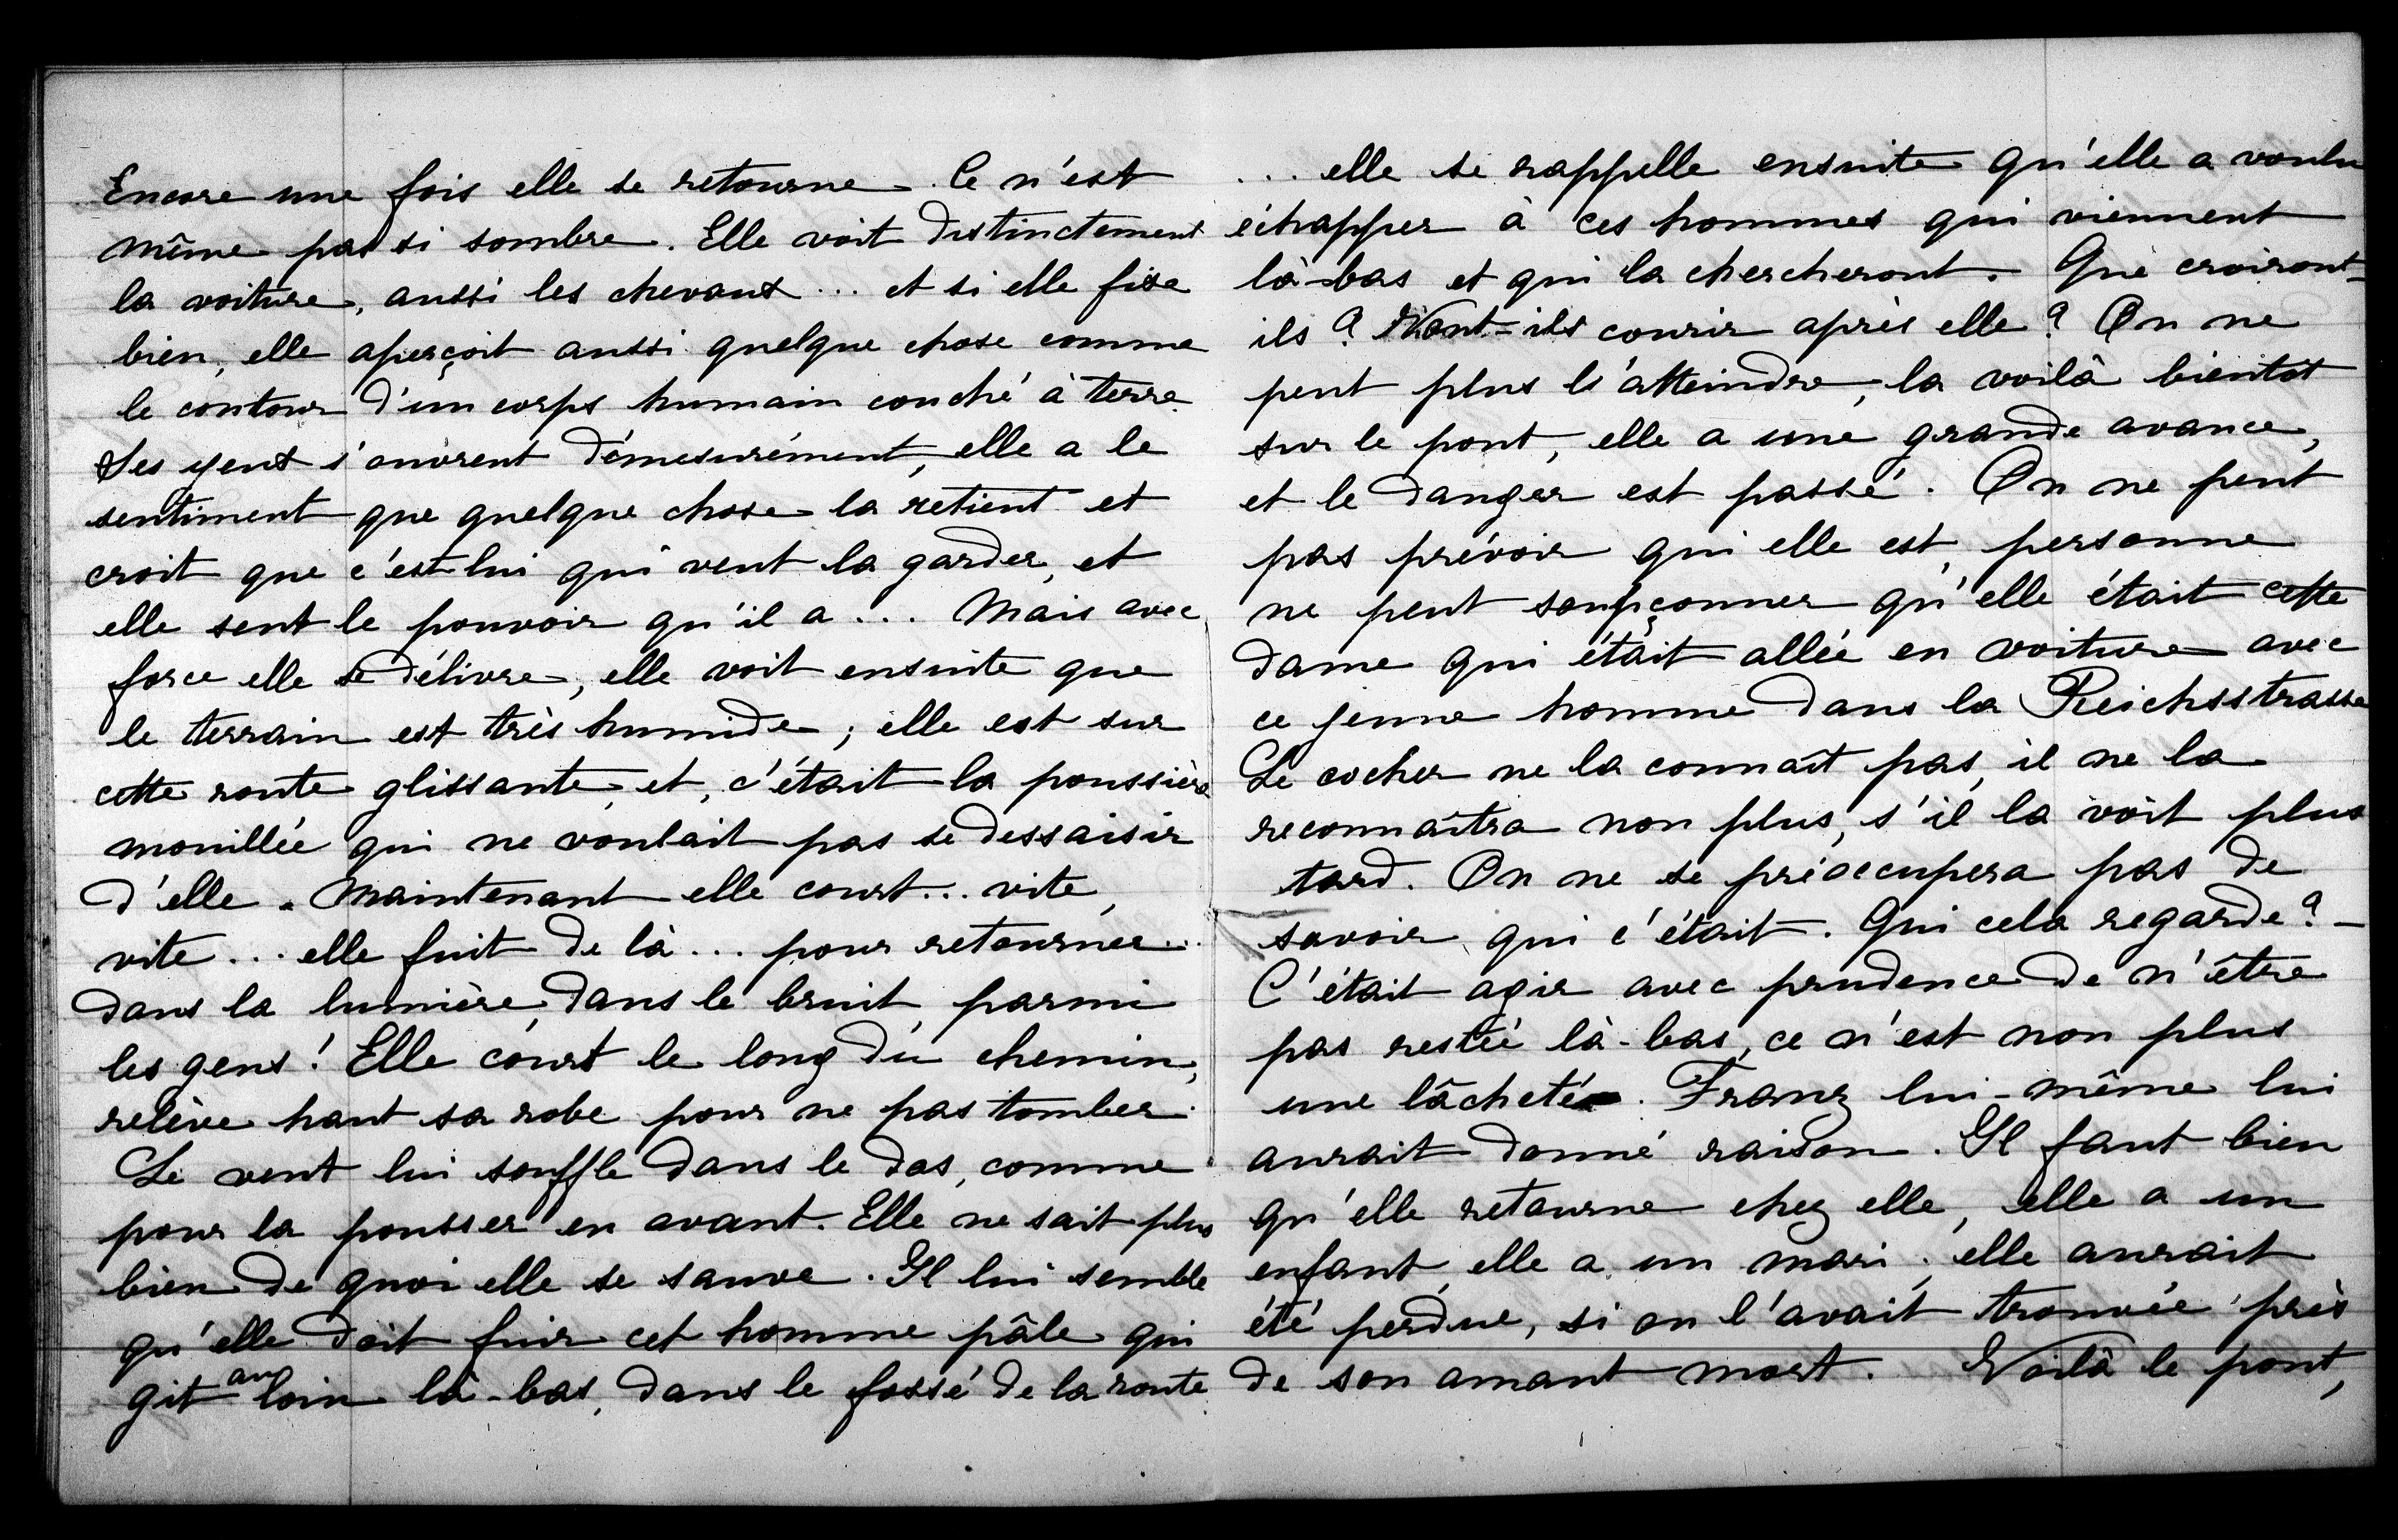 Encore une fois elle se retourne. Ce n'est
même pas si sombre. Elle voit distinctement
la voiture, aussi les chevaux ... et si elle fixe
bien, elle aperçoit aussi quelque chose comme
le contour d'un corps humain couché à terre.
Ses yeux s'ouvrent démesurément, elle a le
sentiment que quelque chose la retient et
croit que c'est lui qui veut la garder, et
elle sent le pouvoir qu'il a ... Mais avec
force elle se délivre, elle voit ensuite que
le terrain est très humide ; elle est sur
cette route glissante, et, c'était la poussière
mouillée qui ne voulait pas se dessaisir
d'elle. Maintenant elle court... vite,
vite ... elle fuit de là ... pour retourner..
dans la lumière, dans le bruit, parmi
les gens ! Elle court le long du chemin,
relève haut sa robe pour ne pas tomber.
Le vent lui souffle dans le dos, comme
pour la pousser en avant. Elle ne sait plus
bien de quoi elle se sauve. Il lui semble
qu'elle doit fuir cet homme pâle qui
git au loin là-bas, dans le fossé de la route.
... elle se rappelle ensuite qu'elle a voulu
échapper à ces hommes qui viennent
là-bas et qui la chercheront. Que croiront-
ils ? Vont-ils courir après elle ? On ne
peut plus l'atteindre, la voilà bientôt
sur le pont, elle a une grande avance,
et le danger est passé. On ne peut
pas prévoir qui elle est, personne
ne peut soupçonner qu'elle était cette
dame qui était allée en voiture avec
ce jeune homme dans la Reichsstrasse
Le cocher ne la connaît pas, il ne la
reconnaîtra non plus, s'il la voit plus
tard. On ne se préoccupera pas de
savoir qui c'était. Qui cela regarde ? -
C'était agir avec prudence de n'être
pas restée là-bas, ce n'est non plus
une lâcheté. Franz lui-même lui
aurait donné raison. Il faut bien
qu'elle retourne chez elle, elle a un
enfant, elle a un mari ; elle aurait
été perdue, si on l'avait trouvée près
de son amant mort. Voilà le pont,